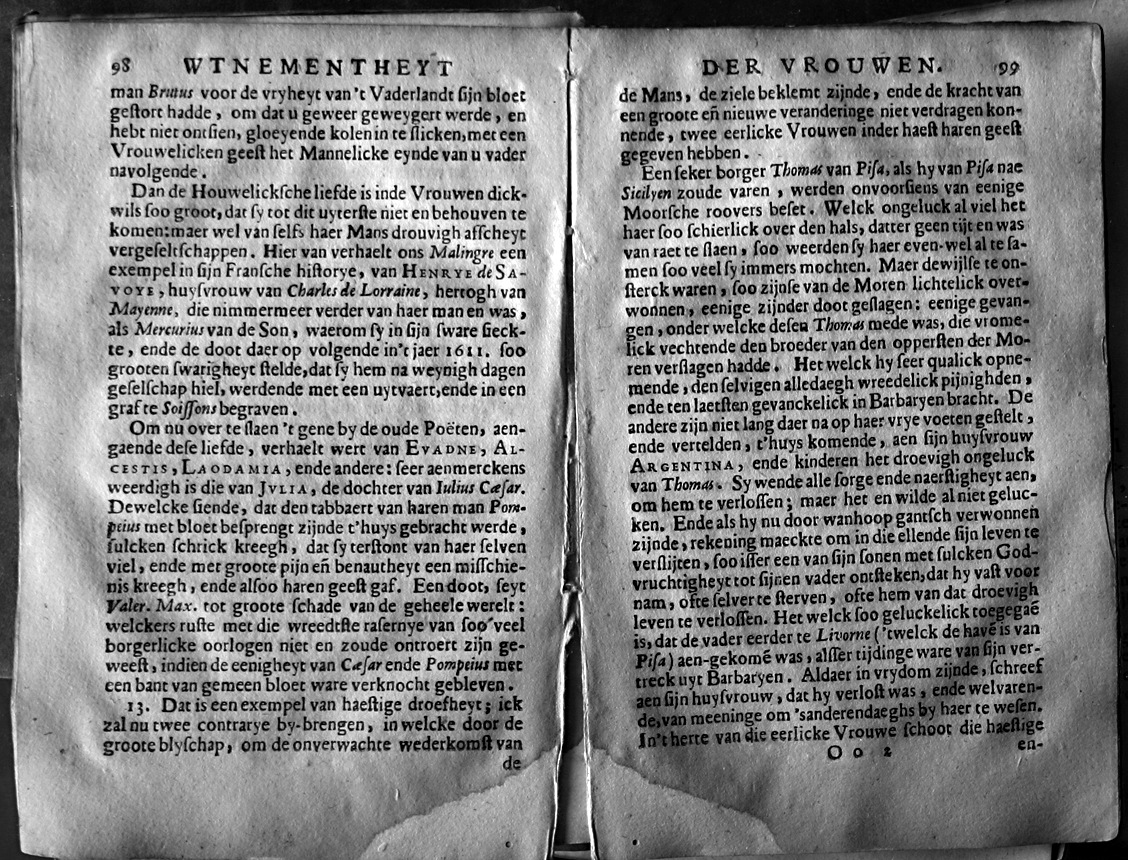 98 WTNEMENTHEYT
man Brutus voor de vryheyt van 't Vaderlandt ſijn bloet
geſtort hadde, om dat u geweer geweygert werde, en
hebt niet ontſien, gloeyende kolen in te ſlicken, met een
Vrouwelicken geeſt het Mannelicke eynde van u vader
navolgende.
Dan de Houwelickſche liefde is inde Vrouwen dick-
wils ſoo groot, dat ſy tot dit uyterſte niet en behouven te
komen: maer wel van ſelfs haer Mans drouvigh afſcheyt
vergeſeltſchappen. Hier van verhaelt ons Malingre een
exempel in ſijn Franſche hiſtorye, van HENRYE de SA-
VOYE, huyſvrouw van Charles de Lorraine, hertogh van
Mayenne, die nimmermeer verder van haer man en was,
als Mercurius van de Son, waerom ſy in ſijn ſware ſieck-
te, ende de doot daer op volgende in't jaer 1611. ſoo
grooten ſwarigheyt ſtelde, dat ſy hem na weynigh dagen
geſelſchap hiel, werdende met een uytvaert, ende in een
graf te Soiſſons begraven.
Om nu over te ſlaen 't gene by de oude Poëten, aen-
gaende deſe liefde, verhaelt wert van EVADNE, AL-
CESTIS, LAODAMIA, ende andere: ſeer aenmerckens
weerdigh is die van JVLIA, de dochter van Iulius Cæſar.
Dewelcke ſiende, dat den tabbaert van haren man Pom-
peius met bloet beſprengt zijnde t'huys gebracht werde,
ſulcken ſchrick kreegh, dat ſy terſtont van haer ſelven
viel, ende met groote pijn eñ benautheyt een miſſchie-
nis kreegh, ende alſoo haren geeſt gaf. Een doot, ſeyt
Valer. Max. tot groote ſchade van de geheele werelt:
welckers ruſte met die wreedtſte raſernye van ſoo veel
borgerlicke oorlogen niet en zoude ontroert zijn ge-
weeſt, indien de eenigheyt van Cæſar ende Pompeius met
een bant van gemeen bloet ware verknocht gebleven.
13. Dat is een exempel van haeſtige droefheyt; ick
zal nu twee contrarye by-brengen, in welcke door de
groote blyſchap, om de onverwachte wederkomſt van
de
DER VROUWEN. 99
de Mans, de ziele beklemt zijnde, ende de kracht van
een groote eñ nieuwe veranderinge niet verdragen kon-
nende, twee eerlicke Vrouwen inder haeſt haren geeſt
gegeven hebben.
Een ſeker borger Thomas van Piſa, als hy van Piſa nae
Sicilyen zoude varen, werden onvoorſiens van eenige
Moorſche roovers beſet. Welck ongeluck al viel het
haer ſoo ſchierlick over den hals, datter geen tijt en was
van raet te ſlaen, ſoo weerden ſy haer even-wel al te ſa-
men ſoo veel ſy immers mochten. Maer dewijlſe te on-
ſterck waren, ſoo zijnſe van de Moren lichtelick over-
wonnen, eenige zijnder doot geſlagen: eenige gevan-
gen, onder welcke deſen Thomas mede was, die vrome-
lick vechtende den broeder van den opperſten der Mo-
ren verſlagen hadde. Het welck hy ſeer qualick opne-
mende, den ſelvigen alledaegh wreedelick pijnighden,
ende ten laetſten gevanckelick in Barbaryen bracht. De
andere zijn niet lang daer na op haer vrye voeten geſtelt,
ende vertelden, t'huys komende, aen ſijn huyſvrouw
ARGENTINA, ende kinderen het droevigh ongeluck
van Thomas. Sy wende alle ſorge ende naerſtigheyt aen,
om hem te verloſſen; maer het en wilde al niet geluc-
ken. Ende als hy nu door wanhoop gantſch verwonnen
zijnde, rekening maeckte om in die ellende ſijn leven te
verſlijten, ſoo iſſer een van ſijn ſonen met ſulcken God-
vruchtigheyt tot ſijnen vader ontſteken, dat hy vaſt voor
nam, ofte ſelver te ſterven, ofte hem van dat droevigh
leven te verloſſen. Het welck ſoo geluckelick toegegaẽ
is, dat de vader eerder te Livorne ('twelck de havẽ is van
Piſa) aen-gekomẽ was, alſſer tijdinge ware van ſijn ver-
treck uyt Barbaryen. Aldaer in vrydom zijnde, ſchreef
aen ſijn huyſvrouw, dat hy verloſt was, ende welvaren-
de, van meeninge om 'sanderendaeghs by haer te weſen.
In't herte van die eerlicke Vrouwe ſchoot die haeſtige
Oo 2 en-